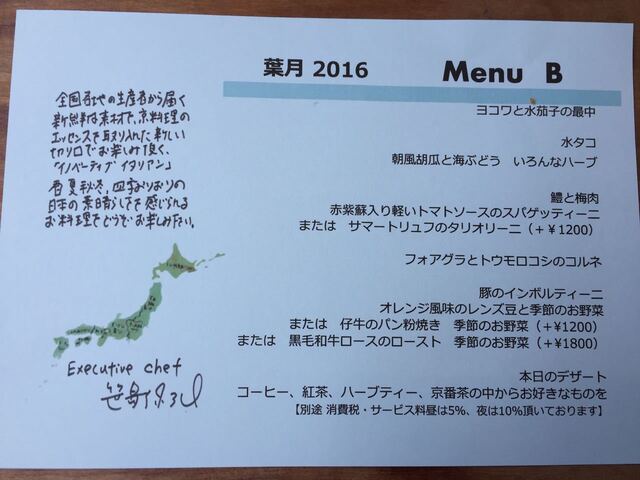 葉月 2016
Menu B
全国各地の生産者から届く
新鮮な素材で、京料理の
エッセンスを取り入れた新しい
切り口でお楽しみ頂く、
「イノベーティブ イタリアン」
春夏秋冬、四季おりおりの
日本の素晴らしさを感じられる
お料理をどうぞお楽しみ下さい。
Executive chef
ヨコワと水茄子の最中
水タコ
朝風胡瓜と海ぶどう いろんなハーブ
鱧と梅肉
赤紫蘇入り軽いトマトソースのスパゲッティーニ
または サマートリュフのタリオリーニ（+￥1200）
フォアグラとトウモロコシのコルネ
豚のインボルティーニ
オレンジ風味のレンズ豆と季節のお野菜
または 仔牛のパン粉焼き 季節のお野菜（+￥1200）
または 黒毛和牛ロースのロースト 季節のお野菜（+￥1800）
本日のデザート
コーヒー、紅茶、ハーブティー、京番茶の中からお好きなものを
【別途 消費税・サービス料昼は5%、夜は10%頂いております】